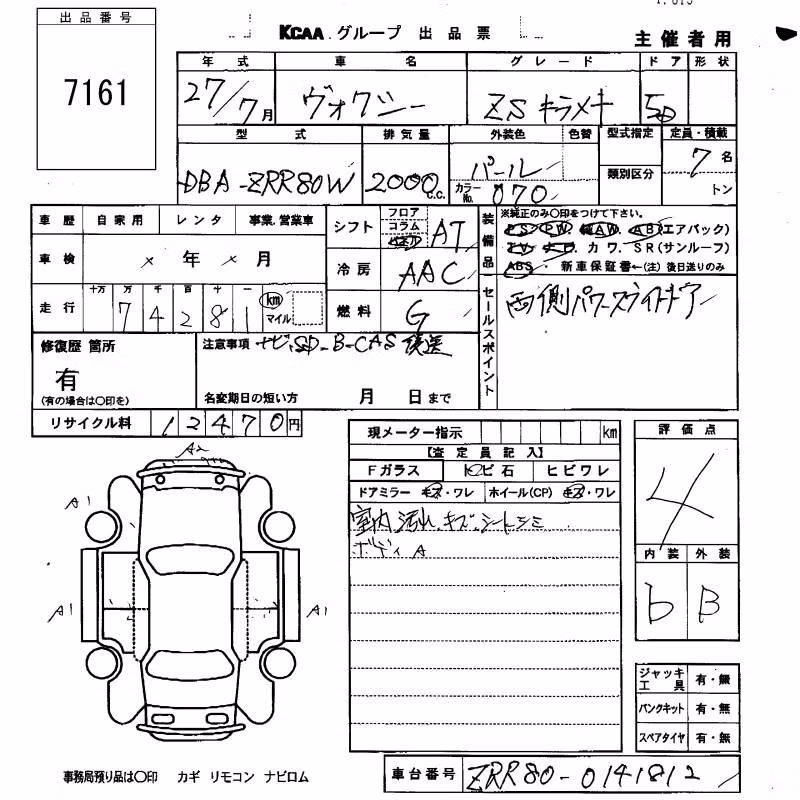 出品番号
7161
KCAA グループ 出品票
主催者用
年式 車名 グレード ドア 形状
27/7月 ヴォクシー ZS キラメキ 5D
型式 排気量 外装色 色替 型式指定 定員・積載
類別区分
DBA-ZRR80W 2000c.c. パール カラーNo. 070 7名
トン
車歴 自家用 レンタ 事業、営業車
シフト フロア コラム AT
装備品 ※純正のみ〇印をつけて下さい。
PS PW AW AB(エアバック)
TV ナビ カワ SR(サンルーフ)
ABS 新車保証書←(注)後日送りのみ
車検 × 年 × 月
冷房 AAC
走行 十万 万 千 百 十 一 km マイル
74281
燃料 G
セールスポイント 両側パワースライドドアー
修復歴 箇所
有
(有の場合は〇印を)
注意事項 ナビ、SD-B-CAS 後送
名変期日の短い方 月 日まで
リサイクル料 12470円
現メーター指示 km
【査定員記入】
Fガラス トビ石 ヒビワレ
ドアミラー キズ・ワレ ホイール(CP) キズ・ワレ
室内汚れ、キズ、シートシミ
ボディA
評価点
4
内装 外装
b B
A2
A1
A1
A1
ジャッキ工具 有・無
パンクキット 有・無
スペアタイヤ 有・無
事務局預り品は〇印 カギ リモコン ナビロム
車台番号 ZRR80-0141812